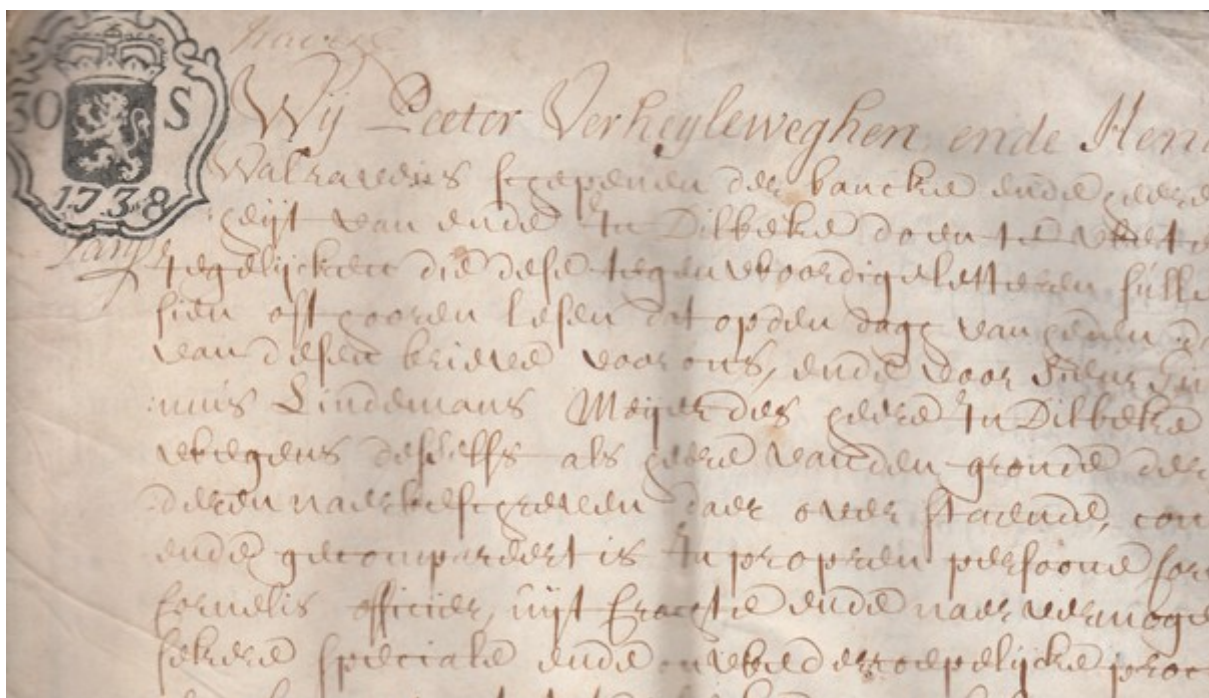 30 S
1738
Wij Peeter Verheyleweghen ende Hen
Walravens schepenen der bancke ende heere
heijt van ende In Dilbeke doen te weete
Iegelijcken die dese tegenwoordige letteren sulle
sien oft hooren lesen dat op den dage van heden
van desen brieve voor ons, ende voor Sieur
nuus Lindemans Meijer des heere In Dilbeke
wegens desselfs als heere vanden gronde der
deren naerbeschreven daer over staende, com
ende gecompareert is In propren persoone Cor
Cornelis officier, uijt crachte ende naer vermoge
sekere speciale ende onwederroepelijcke proc